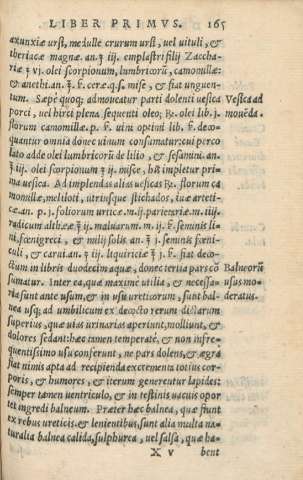 LIBER PRIMVS. 165
axunxiæ ursi, medullæ crurum ursi, uel uituli, &
theriacæ magnæ. an. ʒ iij. emplastri filij Zaccha-
riæ ʒ vj. olei scorpionum, lumbricorũ, camomillæ:
& anethi. an. ℥ ß. ceræ.q.s. misce, & fiat unguen-
tum. Sæpè quoq; admoueatur parti dolenti uesica
Vesica ad
porci, uel hirci plena sequenti oleo; Rx. olei lib. j.
mouẽda.
florum camomillæ. p. ß. uini optimi lib. ß. deco-
quantur omnia donec uinum consumatur: cui perco
lato adde olei lumbricorũ de lilio, & sesamini. an.
ʒ iij. olei scorpionum ʒ ij. misce, hæc impletur pri-
ma uesica. Ad implendas alias uesicas Rx. florum ca
momillæ, meliloti, utriusque stichados, iuæ arteti-
cæ. an. p. j. foliorum urticæ. m. ij. parietariæ. m. iiij.
radicum altheæ. ʒ ij. maluarum. m. ij. ß. seminis li-
ni, fœnigreci, & milij solis. an. ʒ j. seminis fœni-
culi, & carui. an. ʒ iij. liquiritiæ ʒ j. ß. fiat deco-
ctum in libris duodecim aquæ, donec tertia pars cõ
Balneorũ
sumatur. Inter ea, quæ maximè utilia, & necessa-
usus mo-
ria sunt ante usum, & in usu ureticorum, sunt bal-
deratus.
nea usq; ad umbilicum ex decocto rerum dictarum
superius, quæ uias urinarias aperiunt, molliunt, &
dolores sedant: hæc tamen temperatè, & non infre-
quentissimo usu conferunt, ne pars dolens, & ægra
fiat nimis apta ad recipienda excrementa totius cor-
poris, & humores, & iterum generentur lapides:
semper tamen uentriculo, & in testinis uacuis opor
tet ingredi balneum. Præter hæc balnea, quæ fiunt
ex rebus ureticis, & lenientibus, sunt alia multa na-
turalia balnea calida, sulphurea, uel salsa, quæ ha-
X v bent